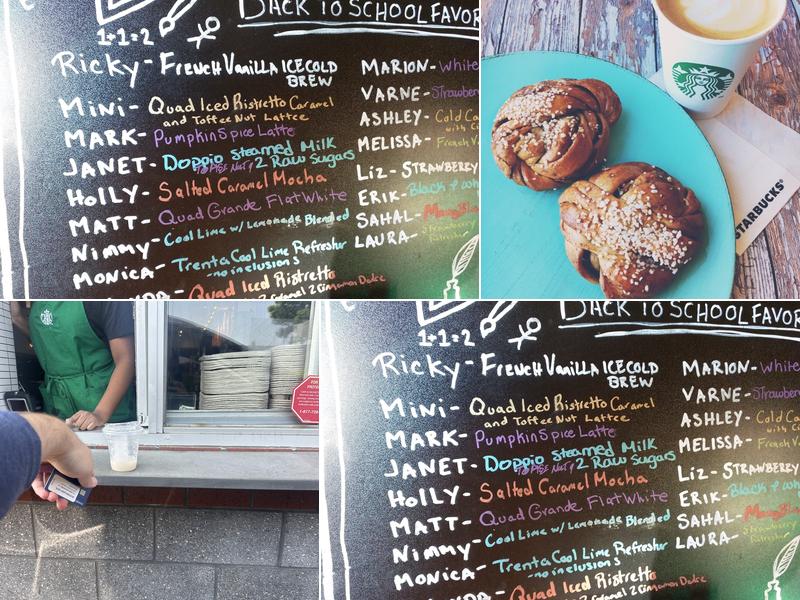 BACK TO SCHOOL FAVOR
1+1=2
Ricky- French Vanilla ICE COLD
BREW
Mini- Quad Iced Ristretto Caramel
and Toffee Nut Lattee
MARK- Pumpkin Spice Latte
JANET- Doppio steamed Milk
2 Raw Sugars
HOLLY- Salted Caramel Mocha
MATT- Quad Grande Flat White
Nimmy- Cool Lime w/ Lemonade Blended
Monica- Trenta Cool Lime Refresher
-no inclusions
Quad Iced Ristretto
2 Caramel 2 Cinnamon Dolce
MARION- White
VARNE- Strawberr
ASHLEY- Cold Ca
with C
MELISSA- French V
Liz- STRAWBERRY
ERIK- Black & wh
SAHAL-
LAURA- Strawberry
Refresher
STARBUCKS®
1-877-726
BACK TO SCHOOL FAVOR
1+1=2
Ricky- French Vanilla ICE COLD
BREW
Mini- Quad Iced Ristretto Caramel
and Toffee Nut Lattee
MARK- Pumpkin Spice Latte
JANET- Doppio steamed Milk
2 Raw Sugars
HOLLY- Salted Caramel Mocha
MATT- Quad Grande Flat White
Nimmy- Cool Lime w/ Lemonade Blended
Monica- Trenta Cool Lime Refresher
-no inclusions
Quad Iced Ristretto
2 Caramel 2 Cinnamon Dolce
MARION- White
VARNE- Strawberr
ASHLEY- Cold Ca
with C
MELISSA- French Va
Liz- STRAWBERRY
ERIK- Black & wh
SAHAL-
LAURA- Strawberry
Refresher